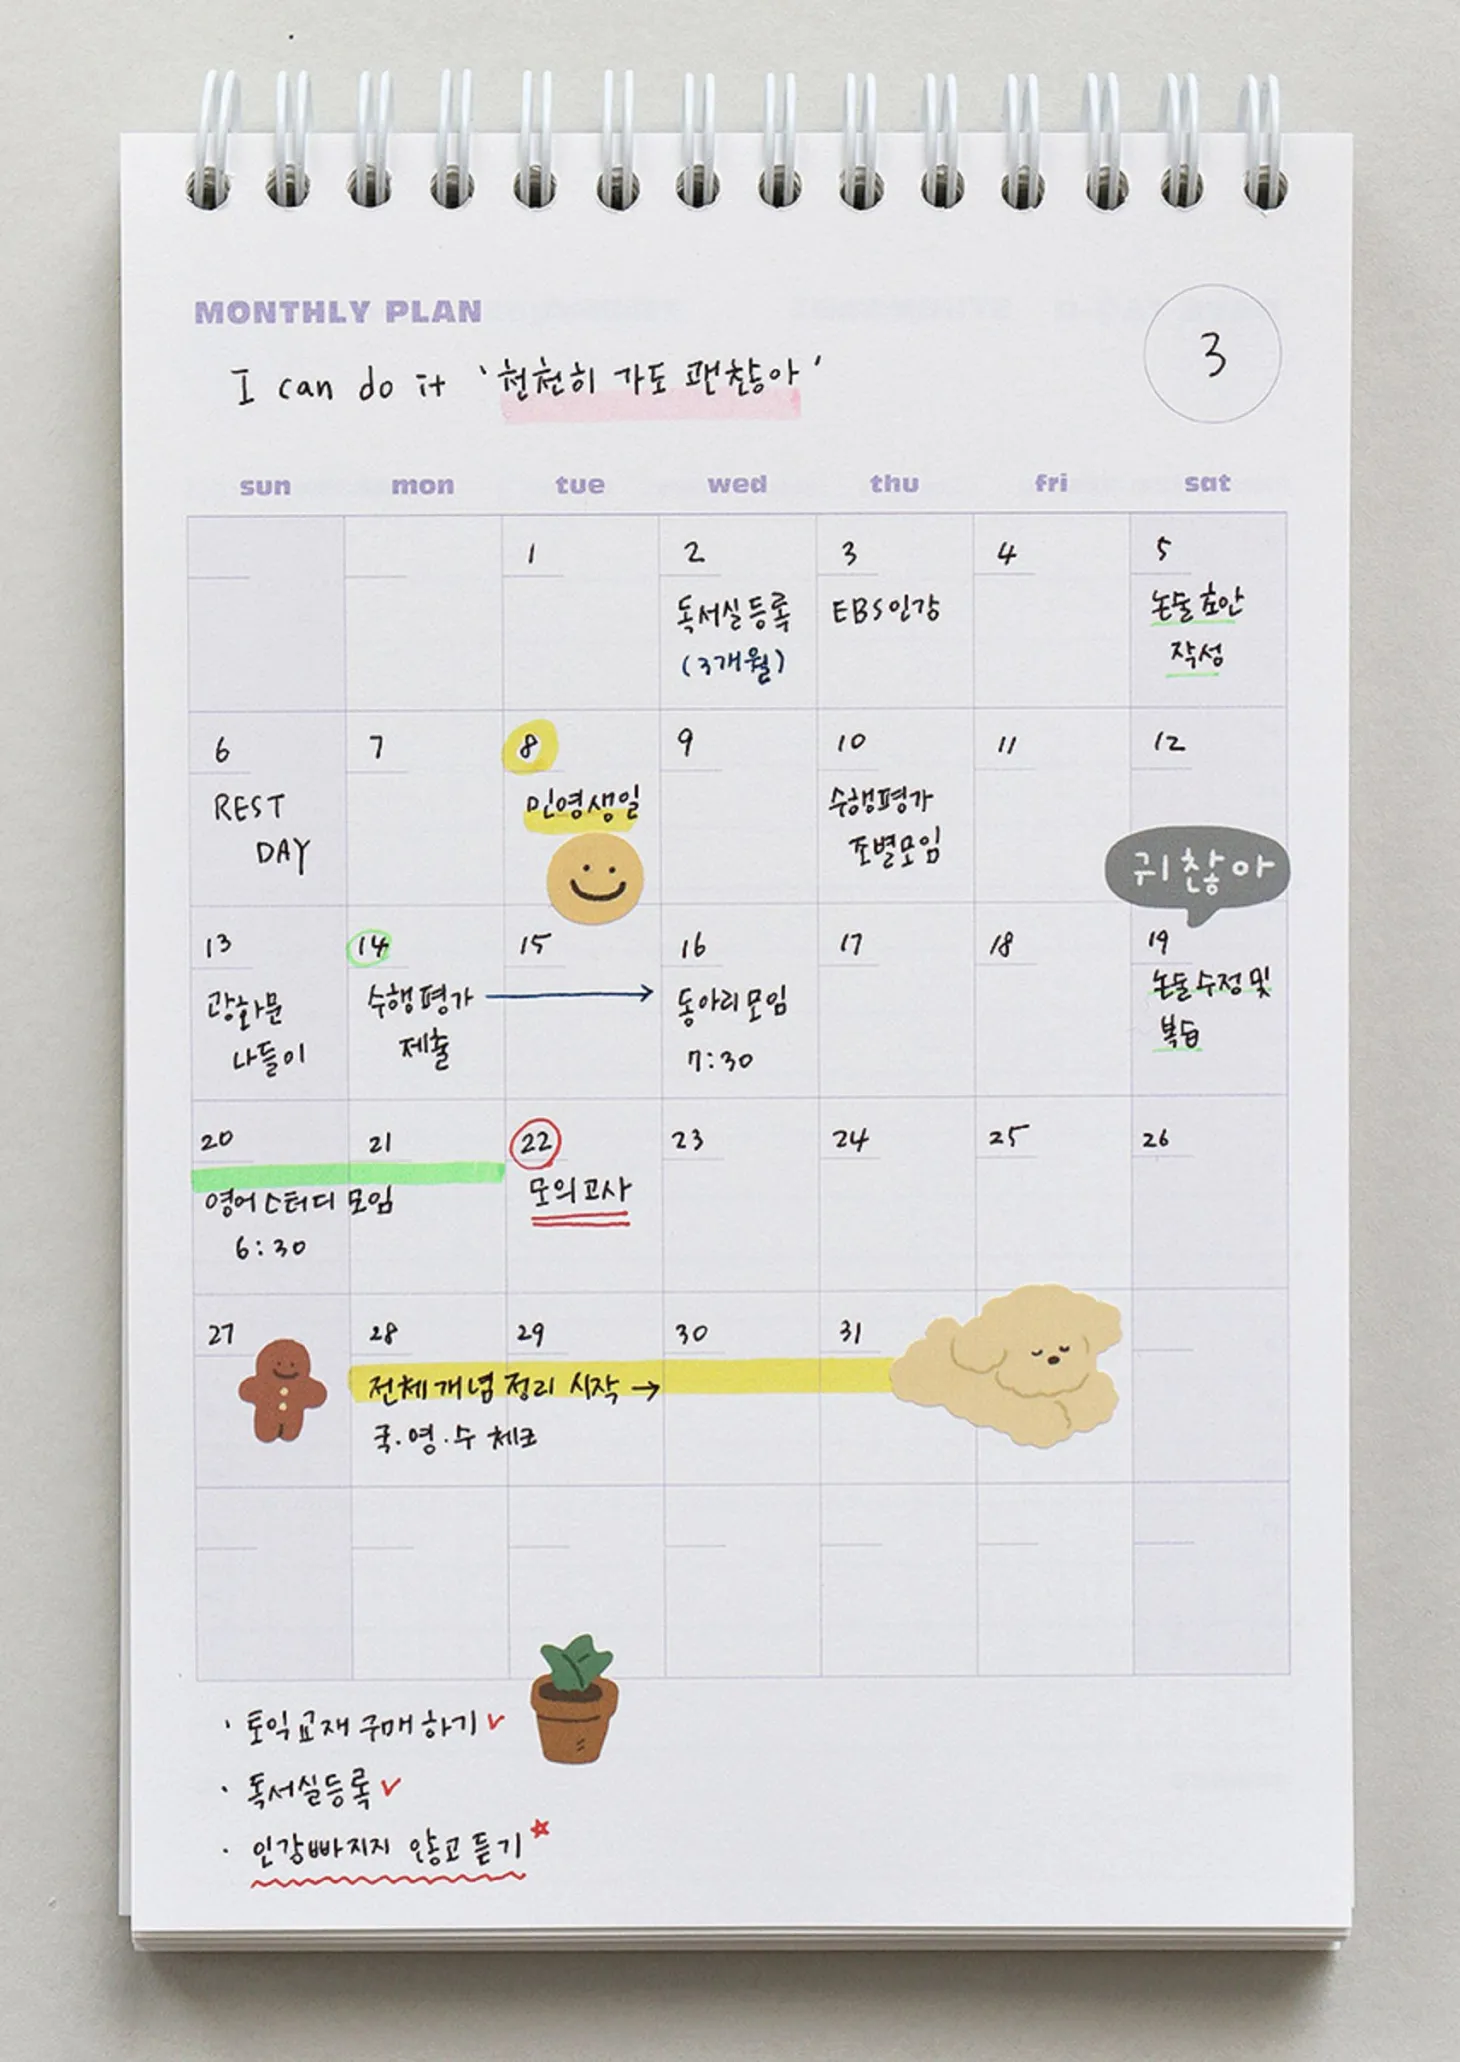 MONTHLY PLAN
3
I can do it '천천히 가도 괜찮아'
sun mon tue wed thu fri sat
1 2 3 4 5
독서실등록
(3개월)
EBS인강
논술초안
작성
6 7 8 9 10 11 12
REST
DAY
민영생일
수행평가
조별모임
귀찮아
13 14 15 16 17 18 19
광화문
나들이
수행평가 →
제출
동아리모임
7:30
논술수정및
복습
20 21 22 23 24 25 26
영어스터디 모임
6:30
모의고사
27 28 29 30 31
전체개념 정리 시작 →
국.영.수 체크
· 토익교재 구매하기 ✓
· 독서실등록 ✓
· 인강빠지지 않고 듣기 ☆